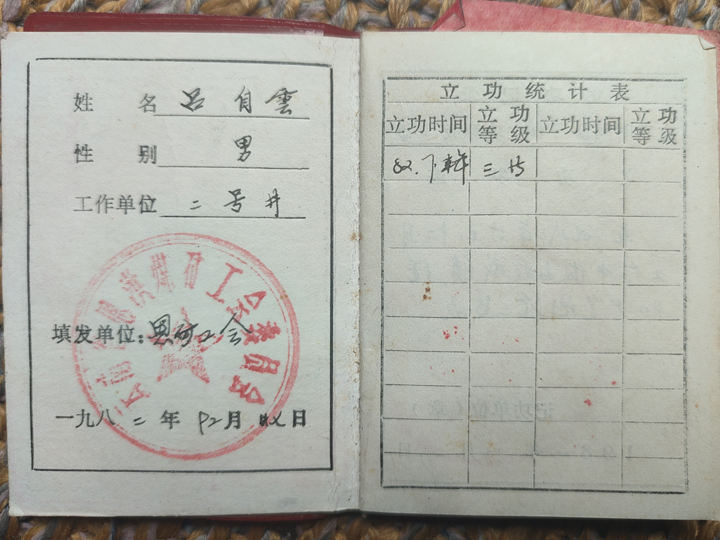 姓 名 吕自雲
性 别 男
工作单位 二号井
填发单位: 恩矿工会
一九八二年12月 日
云南 恩洪煤矿工会委员会
立功统计表
立功时间 立功等级 立功时间 立功等级
82.下半年 三等